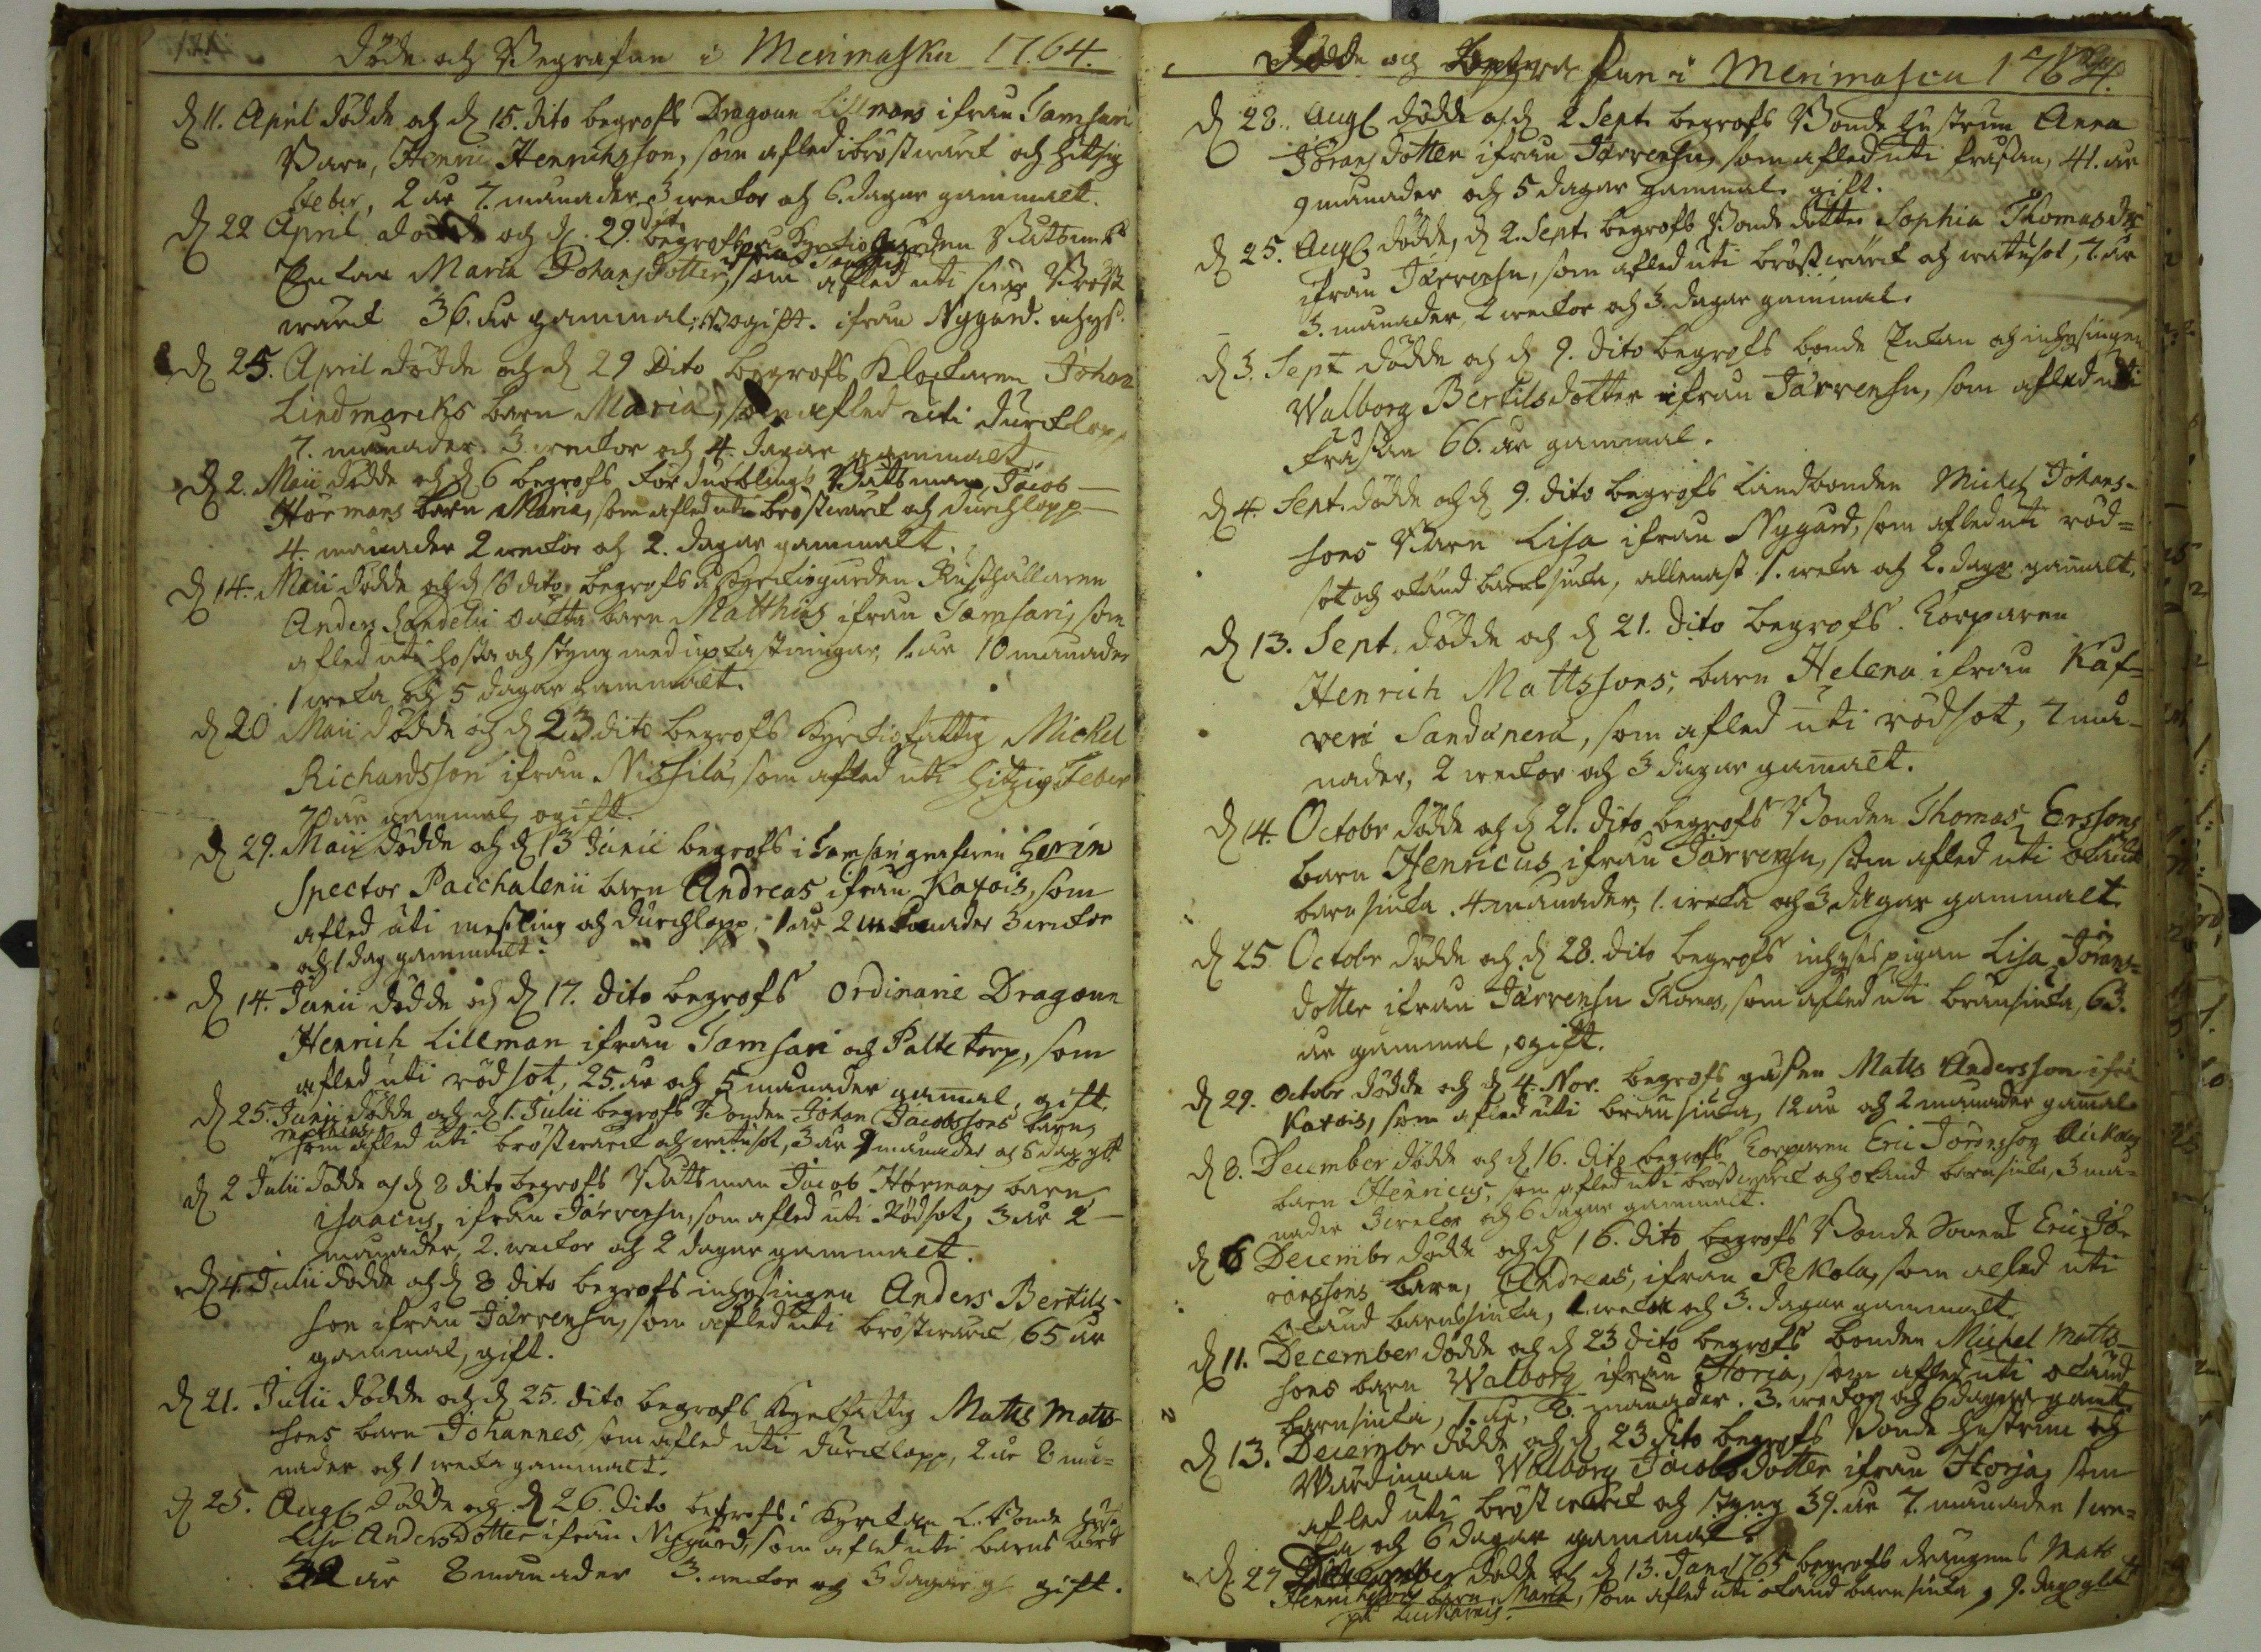 Döde och Begrafne i Merimasku 1764.
D 11. April dödde och d 15. dito begrofs Dragoun Lillmans ifrån Samsari
Barn, Henric Henrichsson, som afled i bröstwärk och hitsig
feber, 2 år 7. månader 3 weckor och 6. dagar gammalt.
D 22 April dödde och d. 29. dit begrofs på Kyrkiogården Båtsmans
Enkan Maria Johansdotter, som afled uti swår Bröst
wärk 36. år gammal; ogift. ifrån Nygård. inhys.
D 25. April dödde och d 29 Dito begrofs Klockaren Johan
Lindmarcks barn Maria, som afled uti durcklopp
7. månader 3 weckor och 4. dagar gammalt
D 2. Maii dödde och d 6 begrofs fördublings Båtsman Jacob
Hörmans barn Maria, som afled uti bröstwärk och durchlopp
4. månader 2 weckor och 2. dagar gammalt.
D 14. Maii dödde och d 16 dito, begrofs å Kyrkiogården Rusthållaren
Anders Sandelii barn Matthias ifrån Samsari, som
afled uti hosta och styng med upkastningar, 1. år 10 månader
1 wecka och 5 dagar gammalt.
D 20 Maii dödde och d 23. dito begrofs Kyrkiofattig Michel
Richardsson ifrån Niskila, som afled uti hitzig Feber
70 år gammal, ogift.
D 29. Maii dödde och d 13 Junii begrofs i Samsari grafwen Herr in
spector Pacchalenii barn Andreas ifrån Katois, som
afled uti meßling och durchlopp, 1 år 2 månader 3 weckor
och 1 dag gammalt.
D 14. Junii dödde och d 17. dito begrofs Ordinarie Dragoun
Henrich Lillman ifrån Samsari och Palte torp, som
afled uti rödsot, 25. år och 5 månader gamal, gift.
D 25. Junii dödde och d 1. Julii begrofs Bonden Johan Jacobssons barn,
som afled uti bröstwärk och watusot, 3 år 9 månader och 5 dagar glt
D 2 Julii dödde och d 8 dito begrofs Båtsman Jacob Hörmans barn
Isaacus, ifrån Järvensu, som afled uti Rödsot, 3 år 2
månader, 2. weckor och 2 dagar gammalt.
D 4. Julii dödde och d 8 dito begrofs inhysingen Anders Bertils-
son ifrån Järvensu, som afled uti bröstwärk, 65 år
gammal, gift.
D 21. Julii dödde och d 25. dito begrofs Kyrkfattig Matts Matts-
sons barn Johannes, som afled uti durcklopp, 2 år 8 må=
nader och 1 wecka gammalt.
D 25. Aug dödde och d 26. dito begrofs i Kyrckan Bonde hust
Lisa Andersdotter ifrån Nygård, som afled uti barns börd
32 år 8 månader 3. weckor och 5 dagar g. gift.
Dödde och Begrafne i Merimascu 1764.
D 28. Aug dödde och d 2 Sept. begrofs Bonde hustrun Anna
Jöransdotter ifrån Järvensu, som afled uti fråßan, 41. år
9 månader och 5 dagar gammal. gift.
D 25. Aug dödde, d 2. Sept. begrofs Bonde dotter Sophia Thomasdr
ifrån Järvensu, som afled uti bröstwärk och watusot, 7. år
3. månader, 2 weckor och 3. dagar gammal.
D 3. Sept dödde och d 9. dito begrofs bonde Enkan och inhysingen
Walborg Bertilsdotter ifrån Järvensu, som afled uti
fråßan 66. år gammal.
D 4. Sept. dödde och d 9. dito begrofs Landbonden Michel Johans-
sons Barn Lisa ifrån Nygård, som afled uti röd=
sot och okänd barnsiuka, allenast 1. wecka och 2. dagr gamalt.
D 13. Sept. dödde och d 21. dito begrofs Torparen
Henrich Mattssons, barn Helena ifrån Kaf=
veri Sandånerä, som afled uti rödsot, 7 må-
nader, 2 weckor och 3 dagar gamalt.
D 14. Octobr dödde och d 21. dito begrofs Bonden Thomas Erssons
barn Henricus ifrån Järvensu, som afled uti okänd
barnsiuka. 4 månader, 1. wecka och 3 dagar gammalt
D 25 Octobr dödde och d 28. dito begrofs inhyses pigan Lisa Jörans=
dotter ifrån Järvensu Thomas, som afled uti brånsiuka, 63.
år gammal, ogift.
D 29. Octobr dödde och d 4. Nov. begrofs gåßen Matts Andersson ifrå
Katois, som afled uti brånsiuka, 12 år och 2 månader gamal
D 8. December dödde och d 16. dito begrofs Torparen Eric Jöransson
barn Henricus, som afled uti bröstwärk och okänd barnsiuka, 3 må=
nader 3 weckor och 6 dagar gammalt.
D 6 Decembr dödde och d 16. dito begrofs Bonde Sonens Eric Jö-
ranssons barn, Andreas, ifrån Pekola, som afled uti
okänd barnsiuka, 1. wecka och 3. dagar gammalt
D 11. December dödde och d 23 dito begrofs bonden Michel Matts-
sons barn Walborg ifrån Horia, som afled uti okänd
barnsiuka, 1. år, 8. månader. 3. weckor och 6 dagar gamt
D 13. Decembr dödde och d 23 dito begrofs Bonde hustrun och
Wärdinnan Walborg Jacobsdotter ifrån Horja, som
afled uti bröstwärk och styng 39. år 7. månader 1 we=
ka och 6 dagar gammal
D 27 December dödde och d 13. Jan 1765 begrofs drängens Mats
Henrichssons barn Maria, som afled uti okänd barnsiuka, 9. dagr glt
på Luckarais.